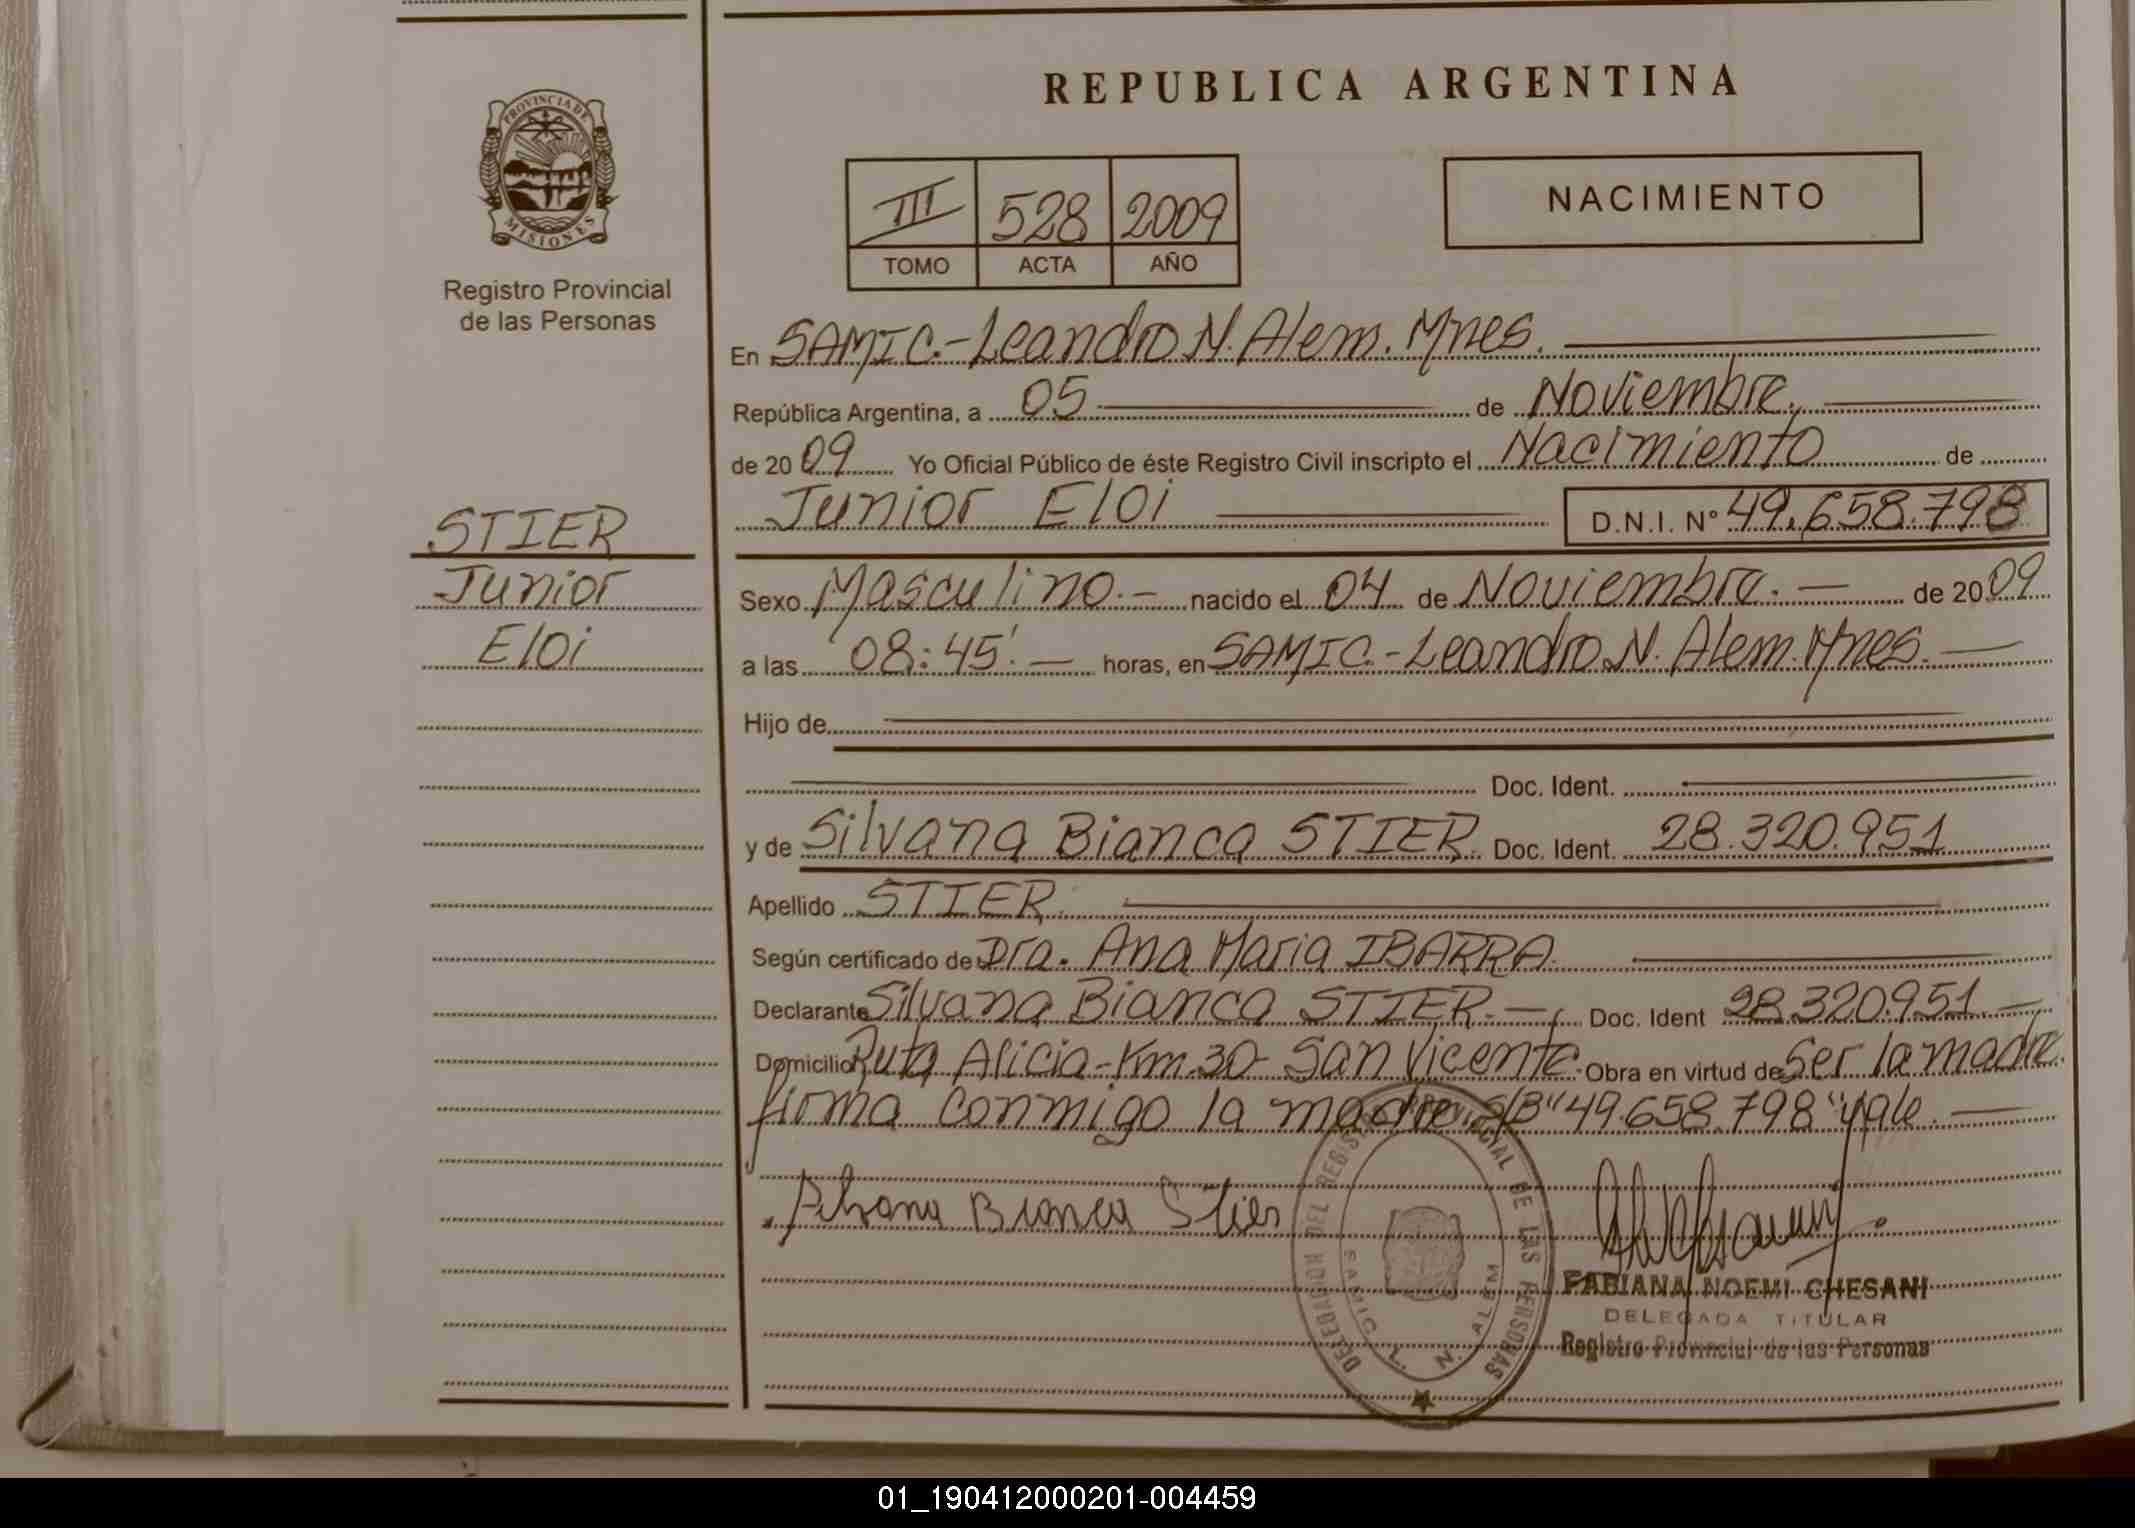 REPUBLICA ARGENTINA
PROVINCIA DE
MISIONES
Registro Provincial
de las Personas
III 528 2009
TOMO ACTA AÑO
NACIMIENTO
En SAMIC.-Leandro N. Alem. Mnes.
República Argentina, a 05 de Noviembre.
de 2009 Yo Oficial Público de éste Registro Civil inscripto el Nacimiento de
Junior Eloi D.N.I. Nº 49.658.798
STIER
Junior
Eloi
Sexo Masculino.- nacido el 04 de Noviembre.- de 2009
a las 08:45'.- horas, en SAMIC.-Leandro N. Alem. Mnes.-
Hijo de
Doc. Ident.
y de Silvana Bianca STIER. Doc. Ident. 28.320.951
Apellido STIER.
Según certificado de Dra. Ana Maria IBARRA.
Declarante Silvana Bianca STIER.- Doc. Ident 28.320.951.-
Domicilio Ruta Alicia-Km.30- San Vicente. Obra en virtud de Ser la madre.
firma conmigo la madre. S/B "49.658.798" Vale.-
Silvana Bianca Stier
DELEGACION DEL REGISTRO PROVINCIAL DE LAS PERSONAS
SAMIC L. N. ALEM
FABIANA NOEMI CHESANI
DELEGADA TITULAR
Registro Provincial de las Personas
01_190412000201-004459